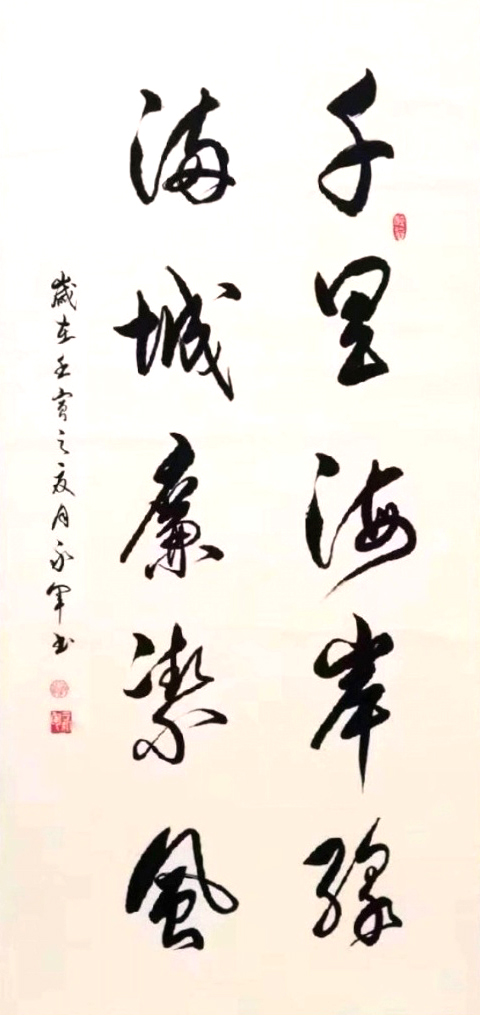 千里海岸綠
滿城廉潔風
歲在壬寅之夏月永軍书